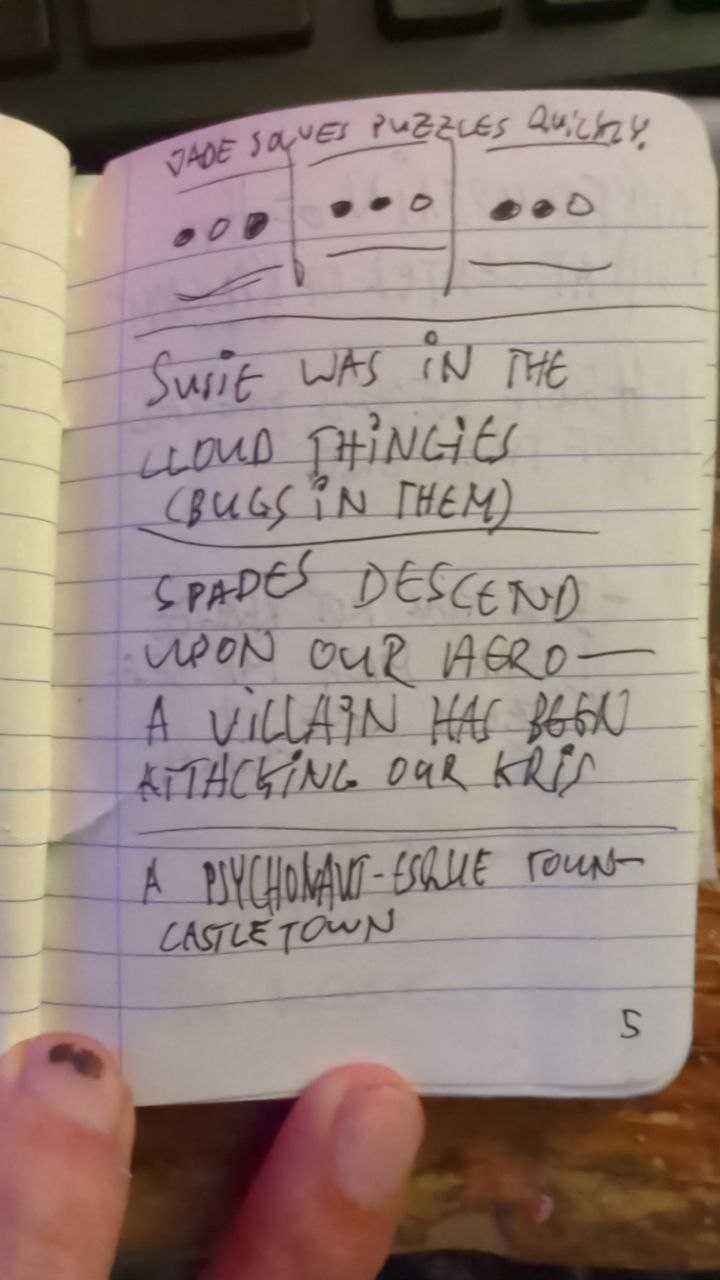 JADE SOLVES PUZZLES QUICKLY.
● ○ ● | ● ● ○ | ● ● ○
SUSIE WAS iN THE
CLOUD THiNGiES
(BUGS iN THEM)
SPADES DESCEND
UPON OUR HERO—
A ViLLAiN HAS BEEN
ATTACKiNG OUR KRiS
A PSYCHONAUT-ESQUE TOWN—
CASTLETOWN
5